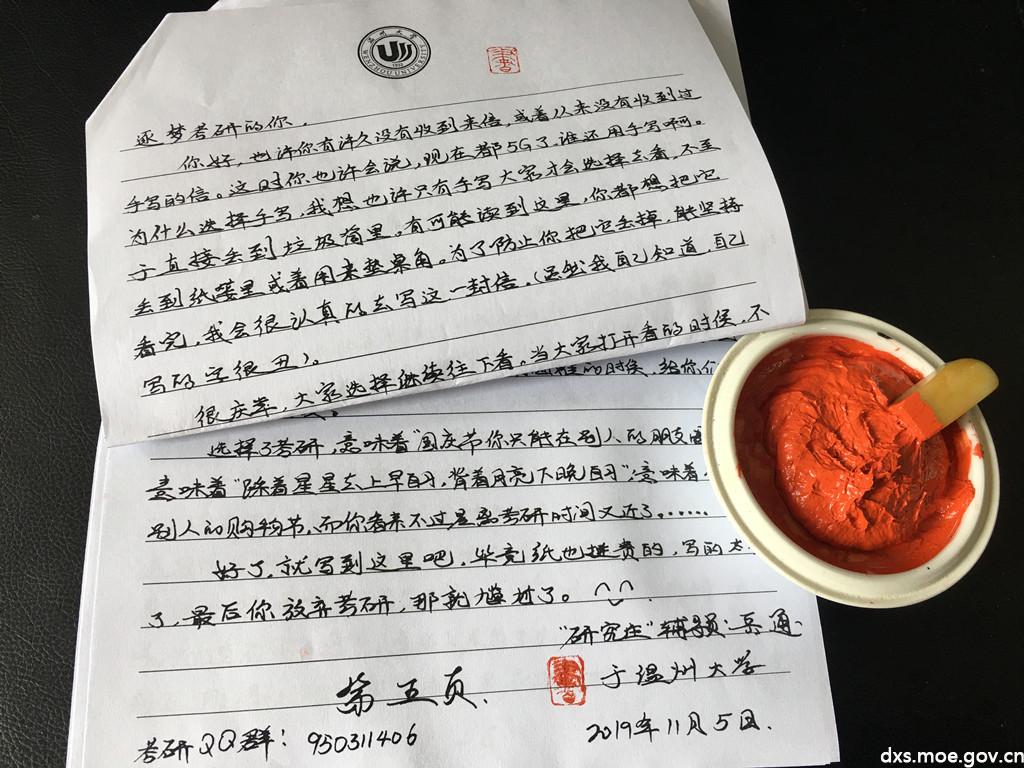 温州大学
WENZHOU UNIVERSITY
逐梦考研的你，
你好，也许你有许久没有收到来信，或着从来没有收到过
手写的信。这时你也许会说，现在都5G了，谁还用手写啊。
为什么选择手写，我想也许只有手写大家才会选择去看，不至
于直接丢到垃圾筒里。有可能读到这里，你都想把它
丢到纸篓里或着用来垫桌角。为了防止你把它丢掉，能坚持
看完，我会很认真的去写这一封信。（虽然我自己知道，自己
写的字很丑）。
很庆幸，大家选择继续往下看。当大家打开看的时候，不
的时候，给你们
选择了考研，意味着“国庆节你只能在别人的朋友圈
意味着“踩着星星去上早自习，背着月亮下晚自习”，意味着
别人的购物节，而你看来不过是离考研时间又近了……
好了，就写到这里吧，毕竟纸也挺贵的，写的太
了，最后你放弃考研，那就尴尬了。
“研究生”辅导员：岳通
于温州大学
第五页.
2019年11月5日.
考研QQ群：950311406
dxs.moe.gov.cn